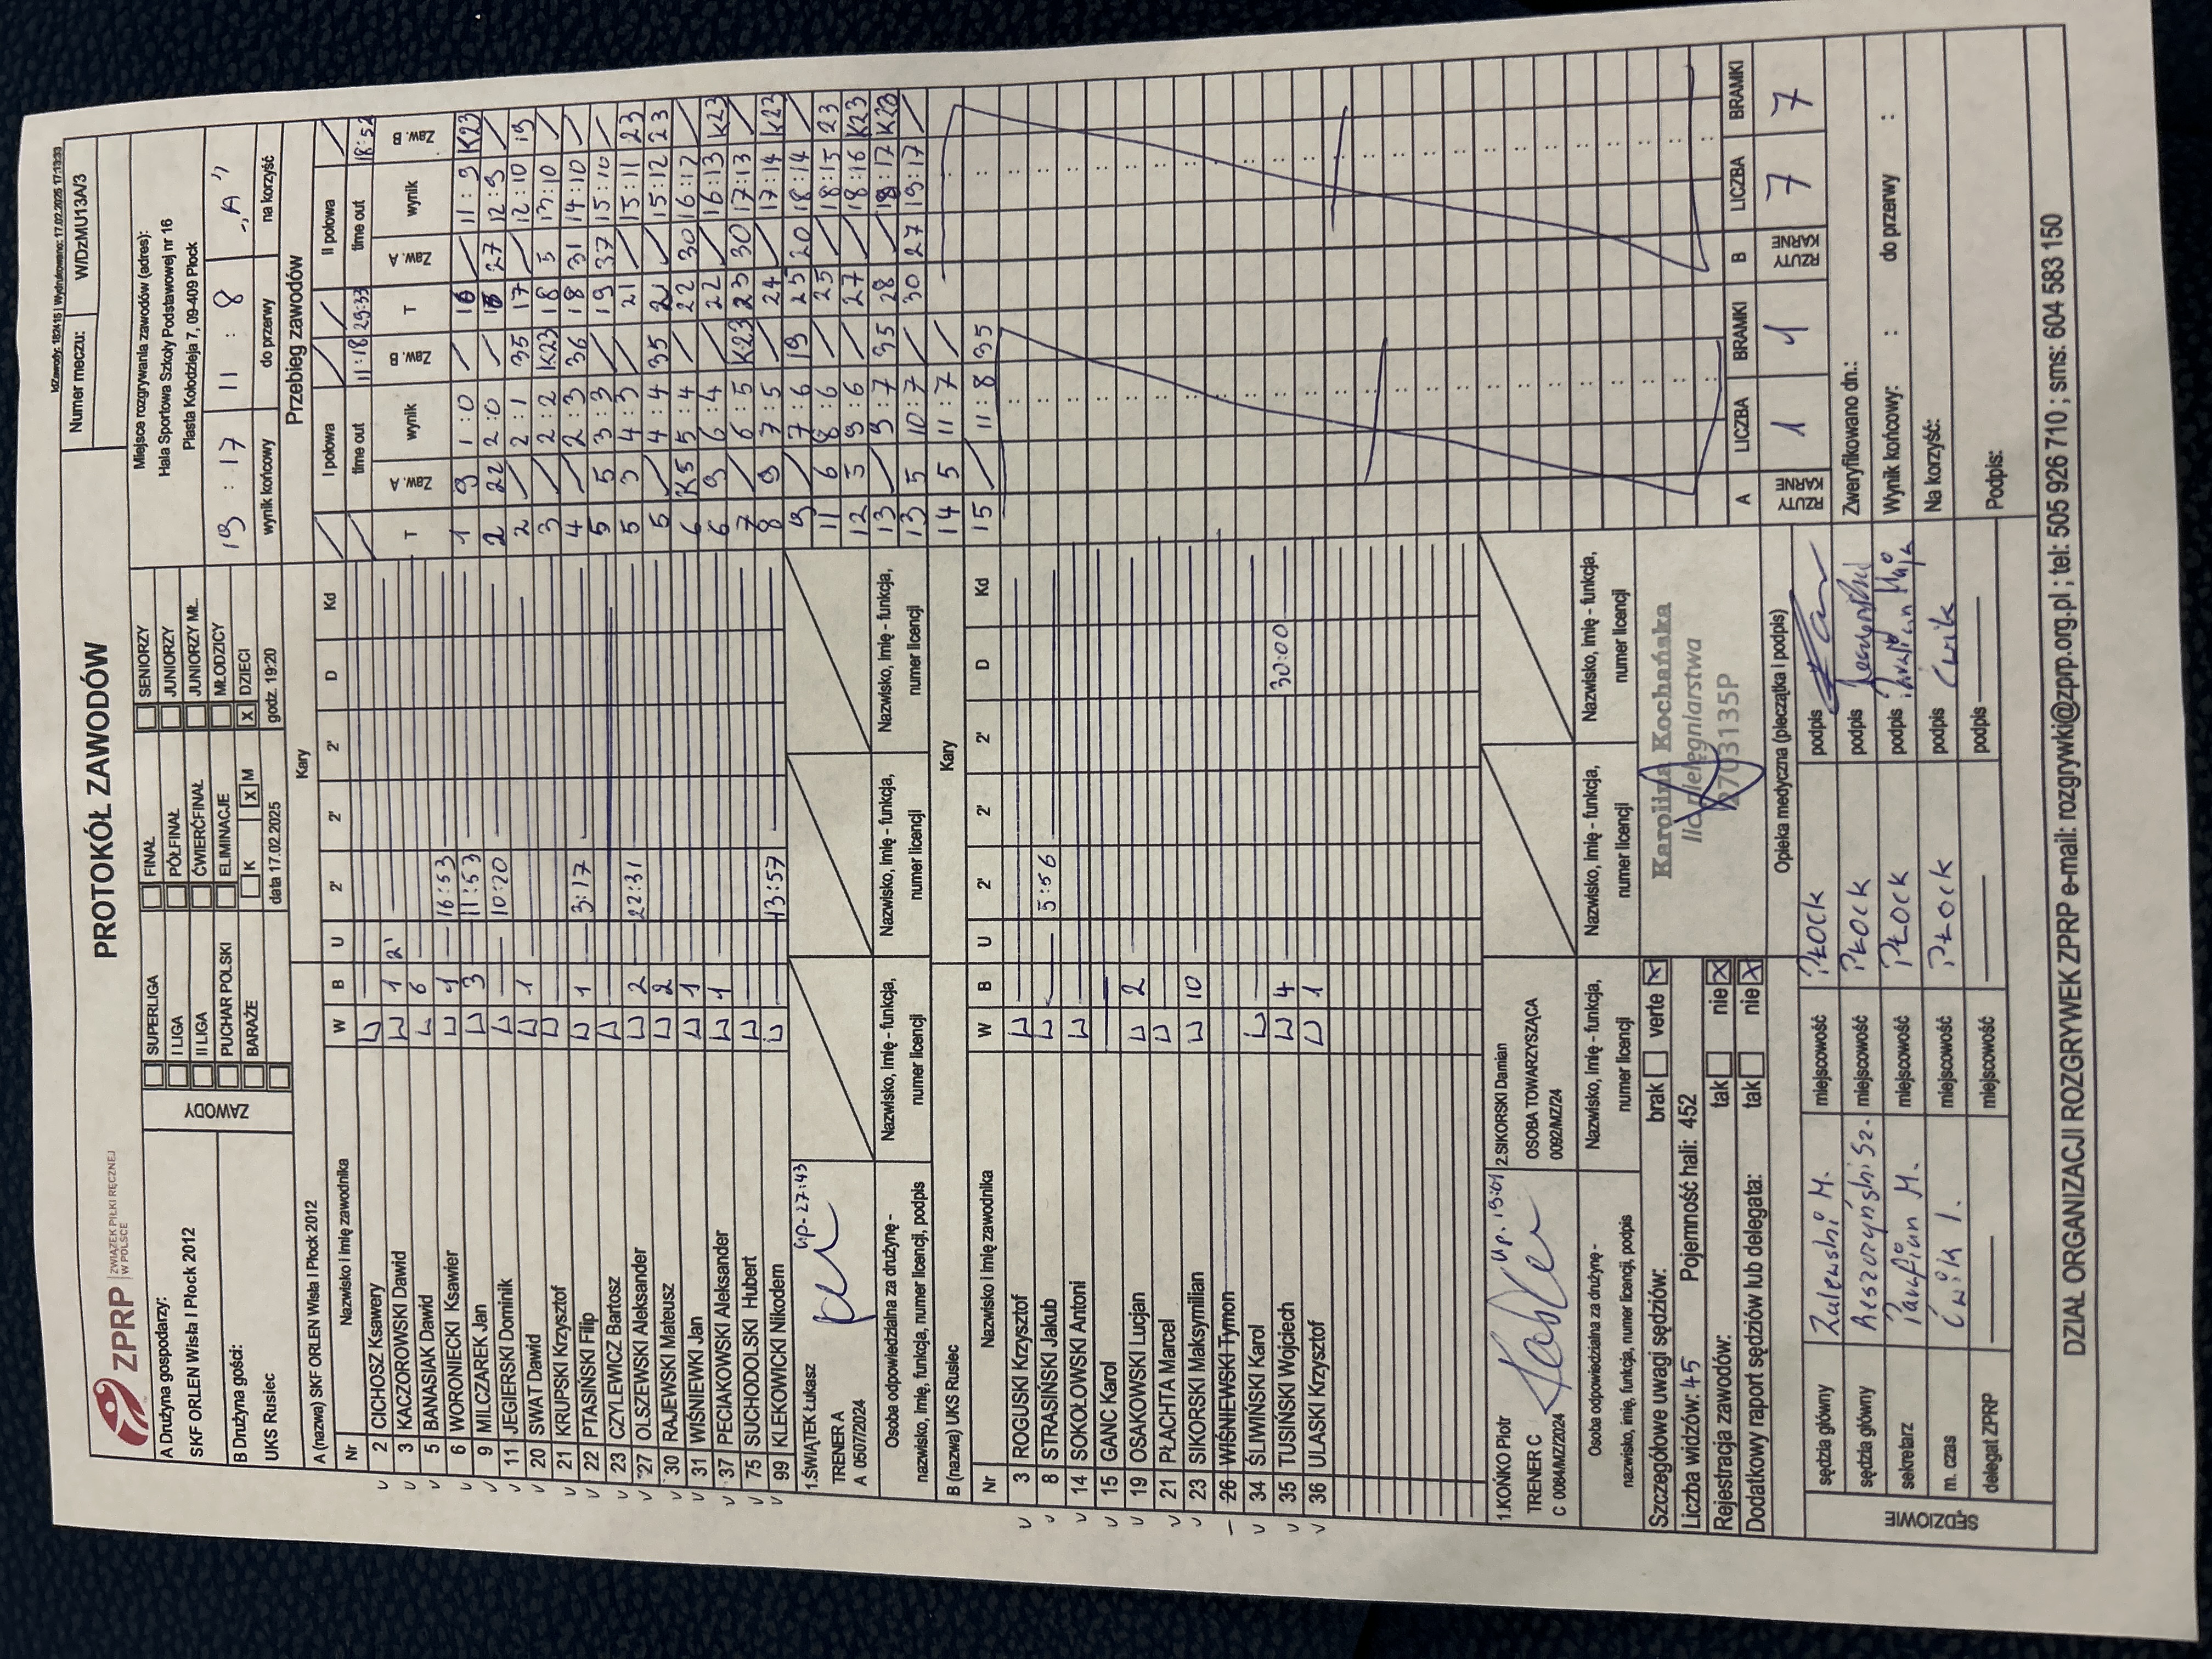 IdZawody: 182416 | Wydrukowano: 17.02.2025 17:13:33
ZPRP ZWIĄZEK PIŁKI RĘCZNEJ W POLSCE
PROTOKÓŁ ZAWODÓW
Numer meczu: W/DzMU13A/3
A Drużyna gospodarzy:
SKF ORLEN Wisła I Płock 2012
B Drużyna gości:
UKS Rusiec
ZAWODY
SUPERLIGA FINAŁ SENIORZY
I LIGA PÓŁFINAŁ JUNIORZY
II LIGA ĆWIERĆFINAŁ JUNIORZY MŁ.
PUCHAR POLSKI ELIMINACJE MŁODZICY
BARAŻE K X M X DZIECI
data 17.02.2025 godz. 19:20
Miejsce rozgrywania zawodów (adres):
Hala Sportowa Szkoły Podstawowej nr 16
Piasta Kołodzieja 7, 09-409 Płock
19 : 17 11 : 8 "A"
wynik końcowy do przerwy na korzyść
A (nazwa) SKF ORLEN Wisła I Płock 2012 Kary
Nr Nazwisko i imię zawodnika W B U 2' 2' 2' D Kd
2 CICHOSZ Ksawery
3 KACZOROWSKI Dawid 1 2'
5 BANASIAK Dawid 6
6 WORONIECKI Ksawier 1 16:53
9 MILCZAREK Jan 3 11:53
11 JEGIERSKI Dominik 10:20
20 SWAT Dawid 1
21 KRUPSKI Krzysztof
22 PTASIŃSKI Filip 1 3:17
23 CZYLEWICZ Bartosz
27 OLSZEWSKI Aleksander 2 22:31
30 RAJEWSKI Mateusz 2
31 WIŚNIEWKI Jan 1
37 PECIAKOWSKI Aleksander 1
75 SUCHODOLSKI Hubert
99 KLEKOWICKI Nikodem 13:57
1.ŚWIĄTEK Łukasz up-27:43
TRENER A
A 0507/2024
Osoba odpowiedzialna za drużynę - nazwisko, imię, funkcja, numer licencji, podpis
Nazwisko, imię - funkcja, numer licencji
Nazwisko, imię - funkcja, numer licencji
Nazwisko, imię - funkcja, numer licencji
B (nazwa) UKS Rusiec Kary
Nr Nazwisko i imię zawodnika W B U 2' 2' 2' D Kd
3 ROGUSKI Krzysztof
8 STRASIŃSKI Jakub 5:56
14 SOKOŁOWSKI Antoni
15 GANC Karol
19 OSAKOWSKI Lucjan 2
21 PŁACHTA Marcel
23 SIKORSKI Maksymilian 10
26 WIŚNIEWSKI Tymon
34 ŚLIWIŃSKI Karol
35 TUSIŃSKI Wojciech 4 30:00
36 ULASKI Krzysztof 1
1.KOŃKO Piotr up.
TRENER C
C 0084/MZ/2024
2.SIKORSKI Damian
OSOBA TOWARZYSZĄCA
0092/MZ/24
Osoba odpowiedzialna za drużynę - nazwisko, imię, funkcja, numer licencji, podpis
Nazwisko, imię - funkcja, numer licencji
Nazwisko, imię - funkcja, numer licencji
Nazwisko, imię - funkcja, numer licencji
Przebieg zawodów
I połowa II połowa
time out 11:18 29:33 time out 18:52
T Zaw. A wynik Zaw. B T Zaw. A wynik Zaw. B
1 9 1:0 16 11:9 K23
2 22 2:0 27 12:9
2 2:1 35 17 12:10 19
3 2:2 K23 18 5 13:10
4 2:3 36 18 31 14:10
5 5 3:3 19 37 15:10
5 3 4:3 21 15:11 23
5 4:4 35 15:12 23
6 K5 5:4 22 30 16:12
6 9 6:4 22 16:13 K23
7 6:5 K23 23 30 17:13
8 9 7:5 24 17:14 K23
9 7:6 19 25 20 18:14
11 6 8:6 25 18:15 23
12 5 9:6 27 18:16 K23
13 9:7 35 28 18:17 K23
13 5 10:7 30 27 19:17
14 5 11:7
15 11:8 35
A RZUTY KARNE LICZBA BRAMKI B RZUTY KARNE LICZBA BRAMKI
1 1 7 7
Szczegółowe uwagi sędziów: brak verte X
Liczba widzów: 45 Pojemność hali: 452
Rejestracja zawodów: tak nie X
Dodatkowy raport sędziów lub delegata: tak nie X
Karolina Kochańska
lic. pielęgniarstwa
2703135P
Opieka medyczna (pieczątka i podpis)
SĘDZIOWIE
sędzia główny Zalewski M. miejscowość Płock podpis
sędzia główny miejscowość Płock podpis
sekretarz miejscowość Płock podpis
m. czas Ćwik I. miejscowość Płock podpis Ćwik
delegat ZPRP miejscowość podpis
Zweryfikowano dn.:
Wynik końcowy: : do przerwy :
Na korzyść:
Podpis:
DZIAŁ ORGANIZACJI ROZGRYWEK ZPRP e-mail: rozgrywki@zprp.org.pl ; tel: 505 926 710 ; sms: 604 583 150